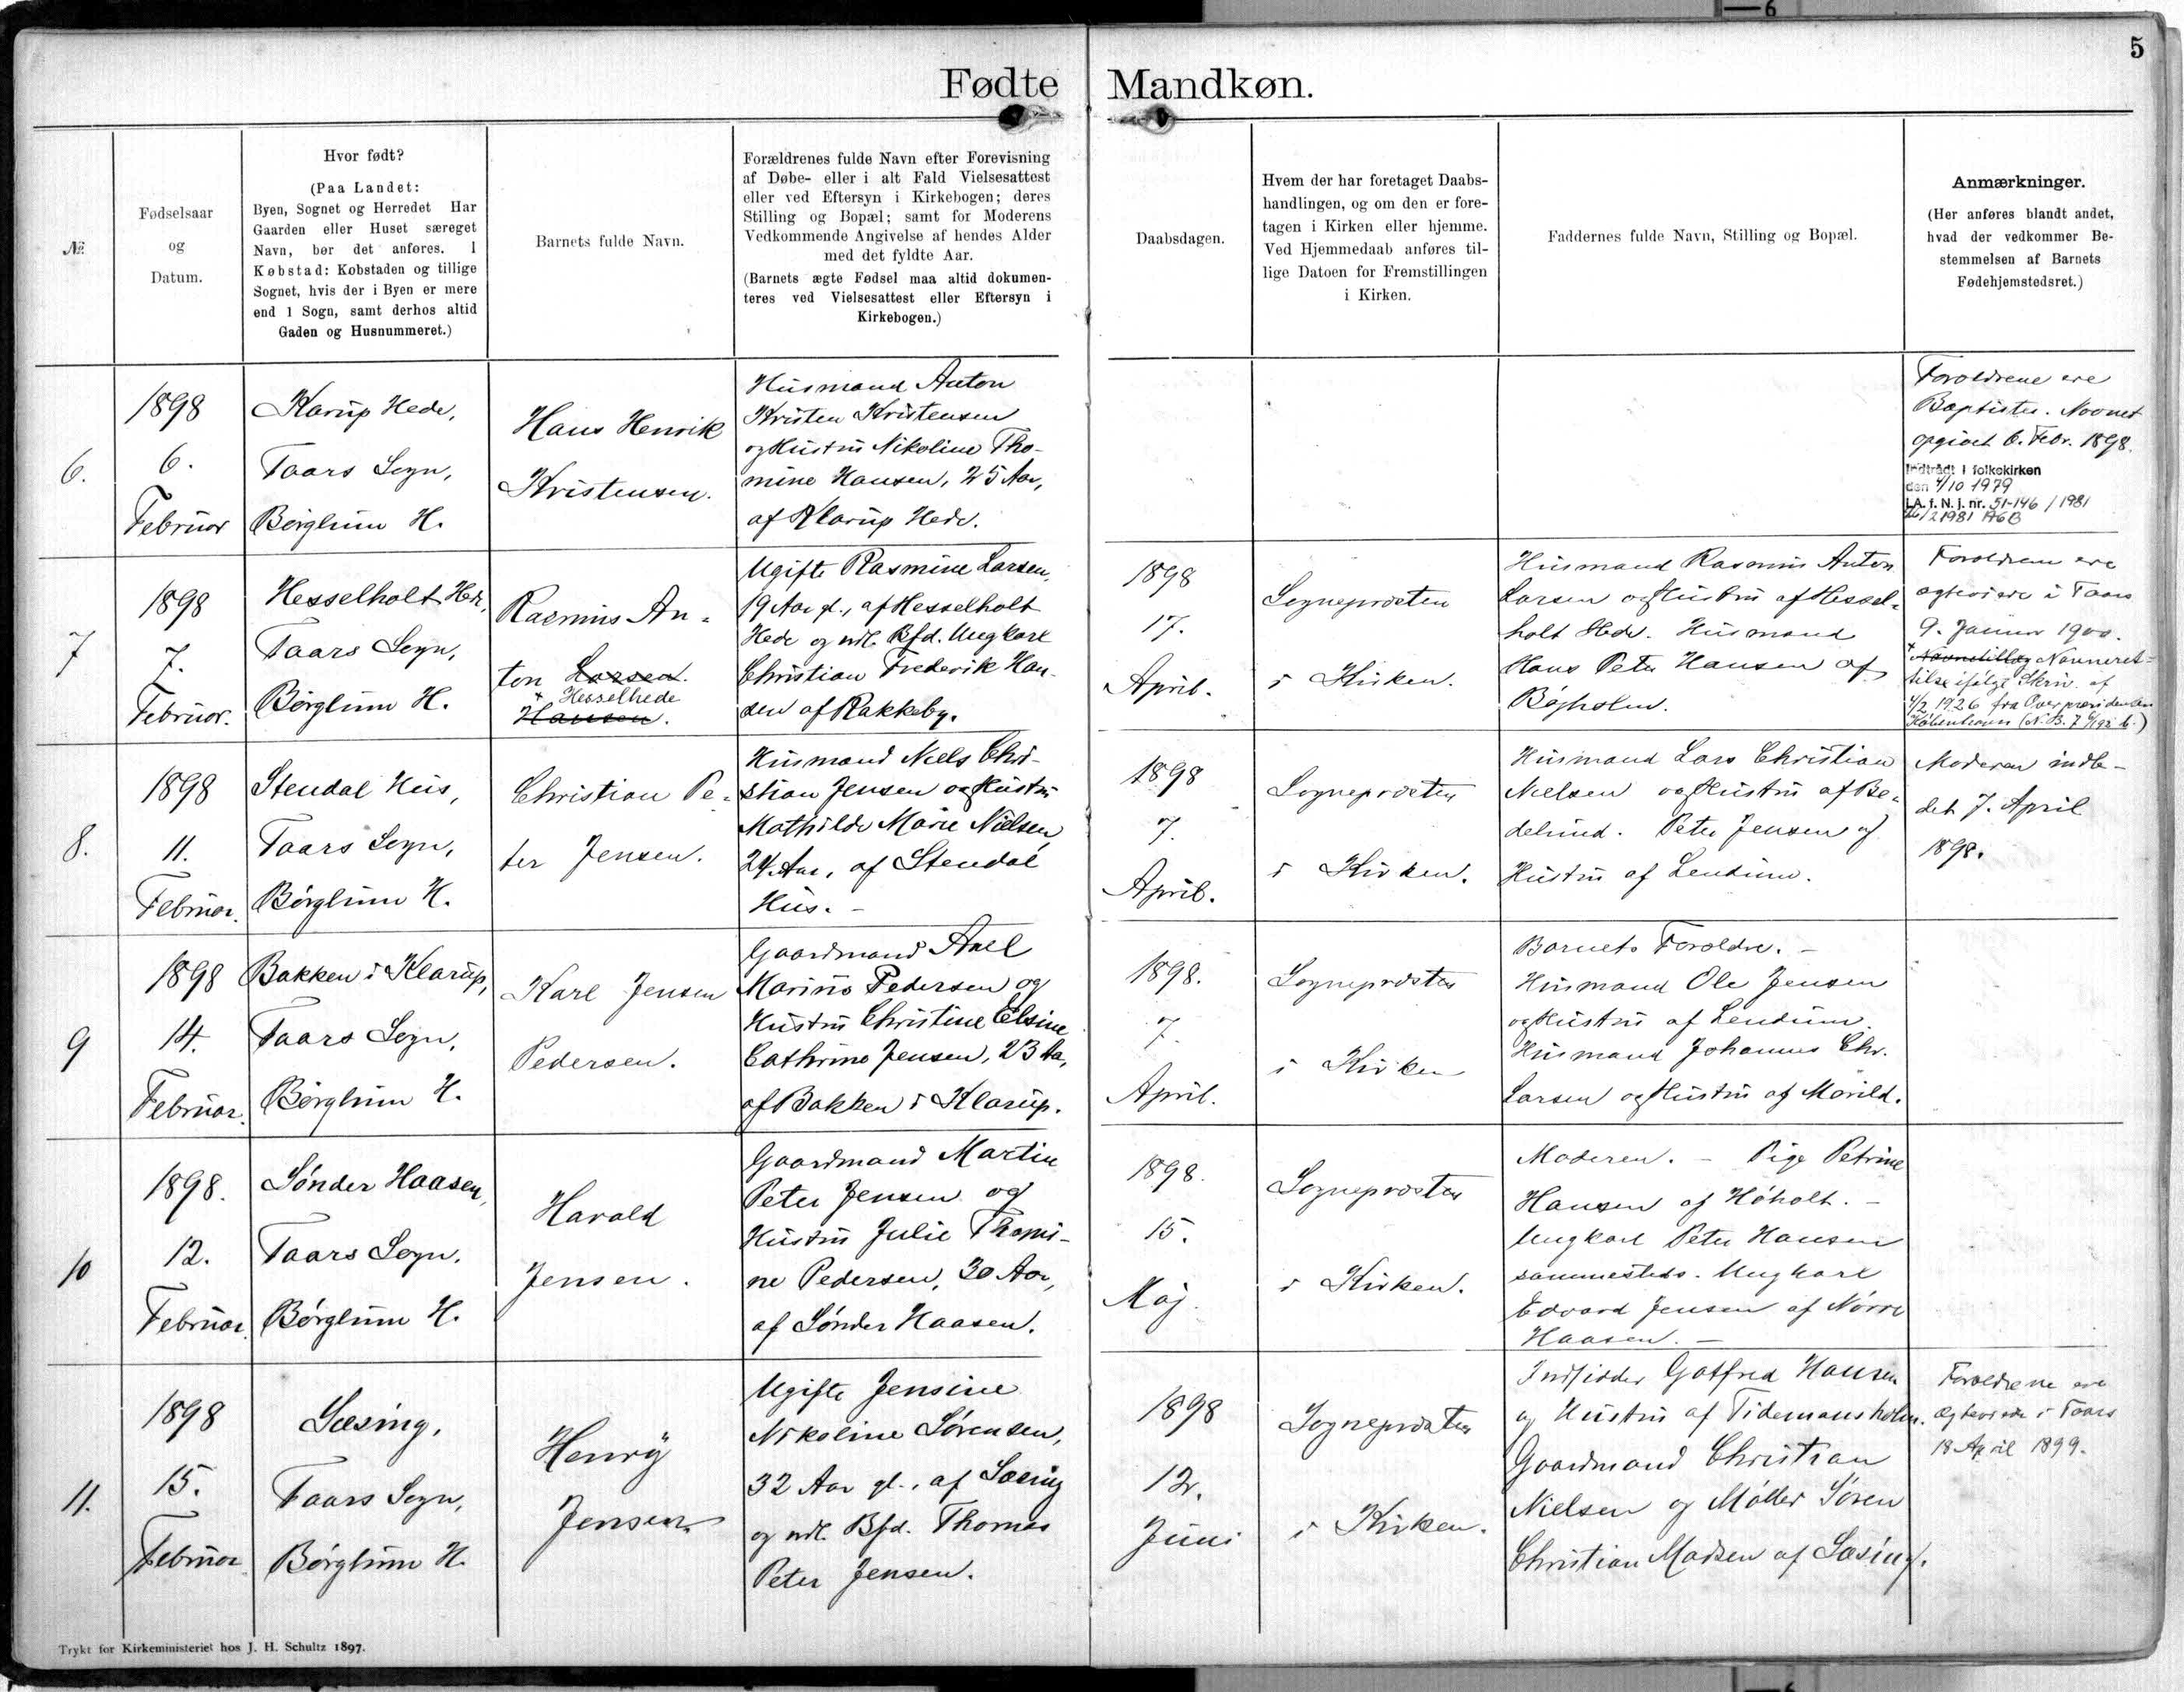 5
Fødte Mandkøn.
№
Fødselsaar
og
Datum.
Hvor født?
(Paa Landet:
Byen, Sognet og Herredet Har
Gaarden eller Huset særeget
Navn, bør det anføres. I
Købstad: Købstaden og tillige
Sognet, hvis der i Byen er mere
end 1 Sogn, samt derhos altid
Gaden og Husnummeret.)
Barnets fulde Navn.
Forældrenes fulde Navn efter Forevisning
af Døbe- eller i alt Fald Vielsesattest
eller ved Eftersyn i Kirkebogen; deres
Stilling og Bopæl; samt for Moderens
Vedkommende Angivelse af hendes Alder
med det fyldte Aar.
(Barnets ægte Fødsel maa altid dokumen-
teres ved Vielsesattest eller Eftersyn i
Kirkebogen.)
Daabsdagen.
Hvem der har foretaget Daabs-
handlingen, og om den er fore-
tagen i Kirken eller hjemme.
Ved Hjemmedaab anføres til-
lige Datoen for Fremstillingen
i Kirken.
Faddernes fulde Navn, Stilling og Bopæl.
Anmærkninger.
(Her anføres blandt andet,
hvad der vedkommer Be-
stemmelsen af Barnets
Fødehjemstedsret.)
6.
1898
6.
Februar
Karup Hede,
Taars Sogn,
Børglum H.
Hans Henrik
Kristensen.
Husmand Anton
Kristen Kristensen
og Hustru Nikoline Tho-
mine Hansen, 25 Aar,
af Klarup Hede.
Forældrene ere
Baptister. Navnet
opgivet 6. Febr. 1898.
Indtrådt i folkekirken
den 4/10 1979
j.A. f. N. j. nr. 51-146 / 1981
7
1898
7.
Februar.
Hesselholt Hede,
Taars Sogn,
Børglum H.
Rasmus An-
ton Larsen.
+ Hesselhede
Hansen.
Ugifte Rasmine Larsen,
19 Aar gl., af Hesselholt
Hede og udl. Bfd. Ungkarl
Christian Frederik Han-
sen af Rakkeby.
1898
17.
April.
Sognepræsten
i Kirken.
Husmand Rasmus Anton
Larsen og Hustru af Hessel-
holt Hede. Husmand
Hans Peter Hansen af
Bøjholm.
Forældrene ere
ægteviede i Taars
9. Januar 1900.
+ Navnetillæg Navneret-
telse ifølge Skriv. af
4/2 1926 fra Overpræsidenten
København
8.
1898
11.
Februar.
Stendal Hus,
Taars Sogn,
Børglum H.
Christian Pe-
ter Jensen.
Husmand Niels Chri-
stian Jensen og Hustru
Mathilde Marie Nielsen
24 Aar, af Stendal
Hus. -
1898
7.
April.
Sognepræsten
i Kirken.
Husmand Lars Christian
Nielsen og Hustru af Be-
delund. Peter Jensen og
Hustru af Lendum.
Moderen indle-
det 7. April
1898.
9
1898
14.
Februar.
Bakken i Klarup,
Taars Sogn,
Børglum H.
Karl Jensen
Pedersen.
Gaardmand Axel
Marino Pedersen og
Hustru Christine Elsine
Cathrine Jensen, 23 Aa,
af Bakken i Klarup.
1898.
7.
April.
Sognepræsten
i Kirken
Barnets Forældre. -
Husmand Ole Jensen
og Hustru af Lendum.
Husmand Johannes Chr.
Larsen og Hustru af Morild.
10
1898.
12.
Februar.
Sønder Haasen,
Taars Sogn,
Børglum H.
Harald
Jensen.
Gaardmand Martin
Peter Jensen og
Hustru Julie Thomi-
ne Pedersen, 30 Aar,
af Sønder Haasen.
1898.
15.
Maj.
Sognepræsten
i Kirken.
Moderen. - Pige Petrine
Hansen af Høholt. -
Ungkarl Peter Hansen
sammesteds. Ungkarl
Edvard Jensen af Nørre
Haasen. -
11.
1898
15.
Februar
Sæsing,
Taars Sogn,
Børglum H.
Henry
Jensen
Ugifte Jensine
Nikoline Sørensen,
32 Aar gl., af Sæsing
og udl. Bfd. Thomas
Peter Jensen.
1898
12.
Juni
Sognepræsten
i Kirken.
Indsidder Gotfred Hansen
og Hustru af Tidemansholm.
Gaardmand Christian
Nielsen og Møller Søren
Christian Madsen af Sæsing.
Forældrene ere
ægteviede i Taars
18 April 1899.
Trykt for Kirkeministeriet hos J. H. Schultz 1897.